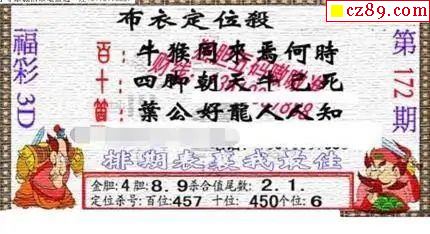 cz89.com
布衣定位殺
福彩3D
第172期
百 牛猴同來焉何時
十 四脚朝天牛已死
個 葉公好龍人人知
排期表裏我最佳
金胆:4胆:8.9杀合值尾数:2.1.
定位杀号:百位:457 十位:450个位:6